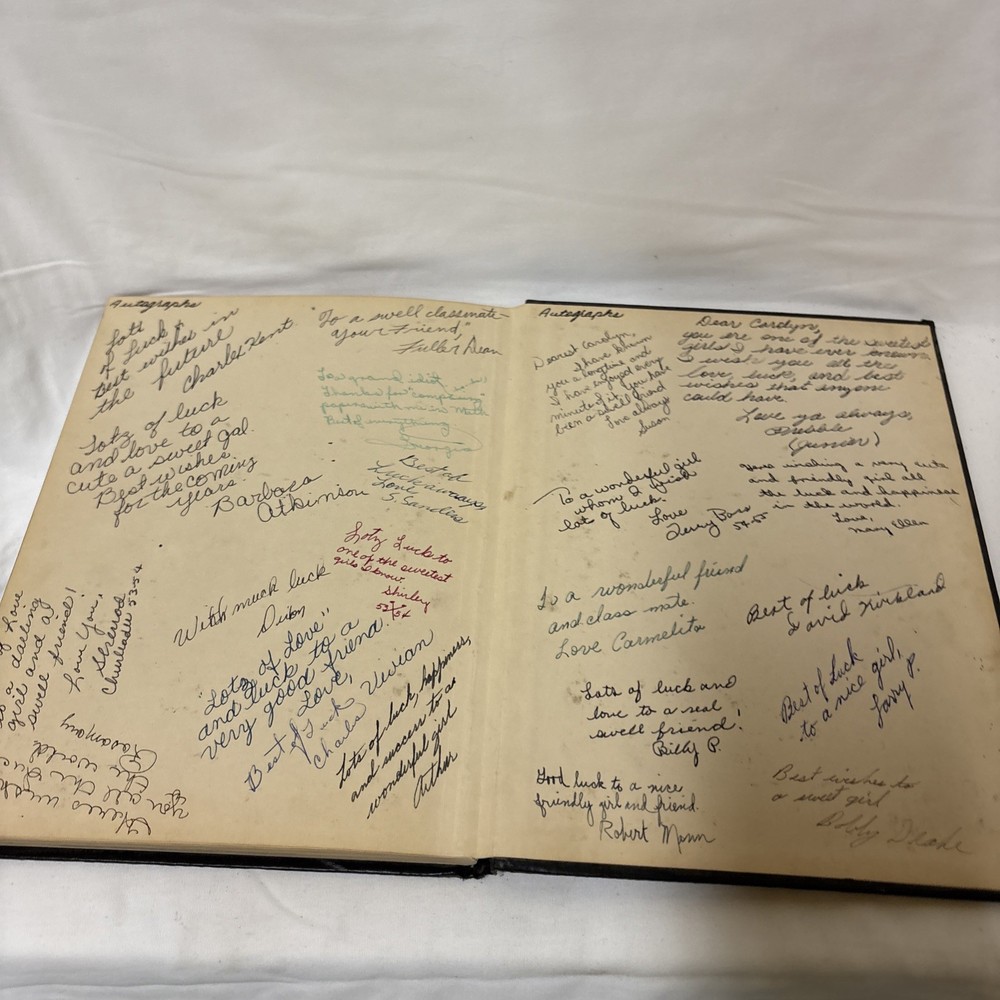 Autographs
Lots
of luck &
best wishes in
the future
Charles Kent
"To a swell classmate—
your Friend,"
Fuller Dean
To a grand idiot
Thanks for
in Math
Best of everything
Georgia
Lotz of luck
and love to a
cute a sweet gal.
Best wishes.
for the coming
years.
Barbara
Atkinson
Best of
Luck always,
Love
S. Sanders
Lotz Luck to
one of the sweetest
girls I know.
Shirley
53-54
With much luck
"Lotz of Love"
and luck to a
very good friend.
Love,
Vivian
Best of Luck
Charles
Lots of luck, happiness,
and success to a
wonderful girl
Arthur
of love
to a darling
girl and a
swell friend!
Love You,
Cheerleader 53-54
Heres wish
you all the luck
in the world
Rosemary
Autographs
Dearest Carolyn,
I have known
you a long time and
I have enjoyed every
minute of it. You have
been a swell friend
Love always
Susan
Dear Carolyn,
you are one of the sweetest
girls I have ever known.
I wish you all the
love, luck, and best
wishes that anyone
could have.
Love ya always,
(Junior)
To a wonderful girl
whom I wish
lot of luck.
Love
Terry Bass
54-55
Here's wishing a very cute
and friendly girl all
the luck and happiness
in the world.
Love,
Mary Ellen
To a wonderful friend
and class mate.
Love Carmelita
Best of luck
David Kirkland
Lots of luck and
love to a real
swell friend!
Billy P.
Best of Luck
to a nice girl,
Larry P.
Good luck to a nice
friendly girl and friend.
Robert Mann
Best wishes to
a sweet girl
Bobby Deane